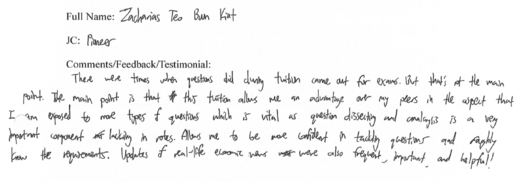 Full Name: Zacharias Teo Bun Kiat
JC: Pioneer
Comments/Feedback/Testimonial:
There were times when questions did during tuition came out for exams. But that's not the main
point. The main point is that this tuition allows me an advantage over my peers in the aspect that
I am exposed to more types of questions which is vital as question dissecting and analysis is a very
important component lacking in notes. Allows me to be more confident in tackling questions and roughly
know the requirements. Updates of real-life economic news were also frequent, important, and helpful!